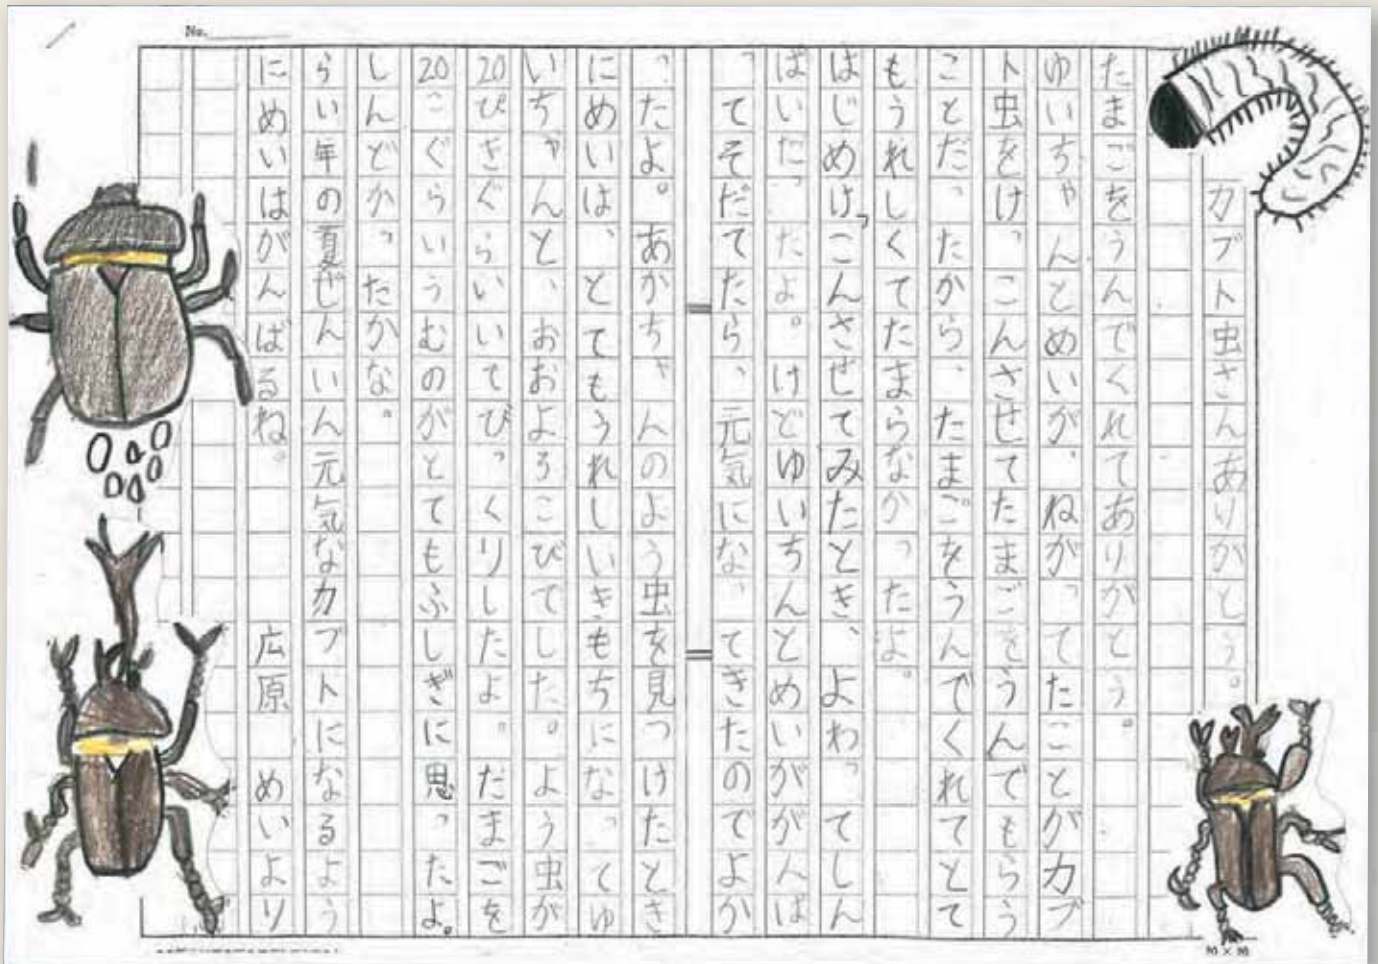 No.
カブト虫さんありがとう。
たまごをうんでくれてありがとう。
ゆいちゃんとめいが、ねがってたことがカブ
ト虫をけっこんさせてたまごをうんでもらう
ことだったから、たまごをうんでくれてとて
もうれしくてたまらなかったよ。
はじめけっこんさせてみたとき、よわってしん
ぱいだったよ。けどゆいちんとめいががんば
ってそだてたら、元気になってきたのでよか
ったよ。あかちゃんのよう虫を見つけたとき
にめいは、とてもうれしいきもちになってゆ
いちゃんと、おおよろこびでした。よう虫が
20ぴきぐらいいてびっくりしたよ。だまごを
20こぐらいうむのがとてもふしぎに思ったよ。
しんどかったかな。
らい年の夏ぜんいん元気なカブトになるよう
にめいはがんばるね。 広原 めいより